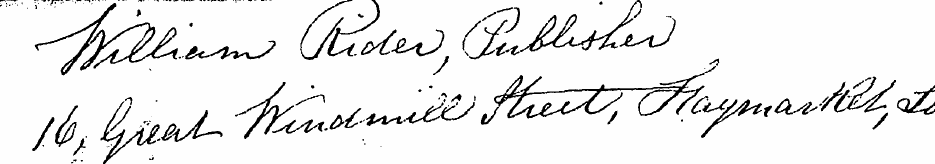 William Rider, Publisher
16, Great Windmill Street, Haymarket, Lo